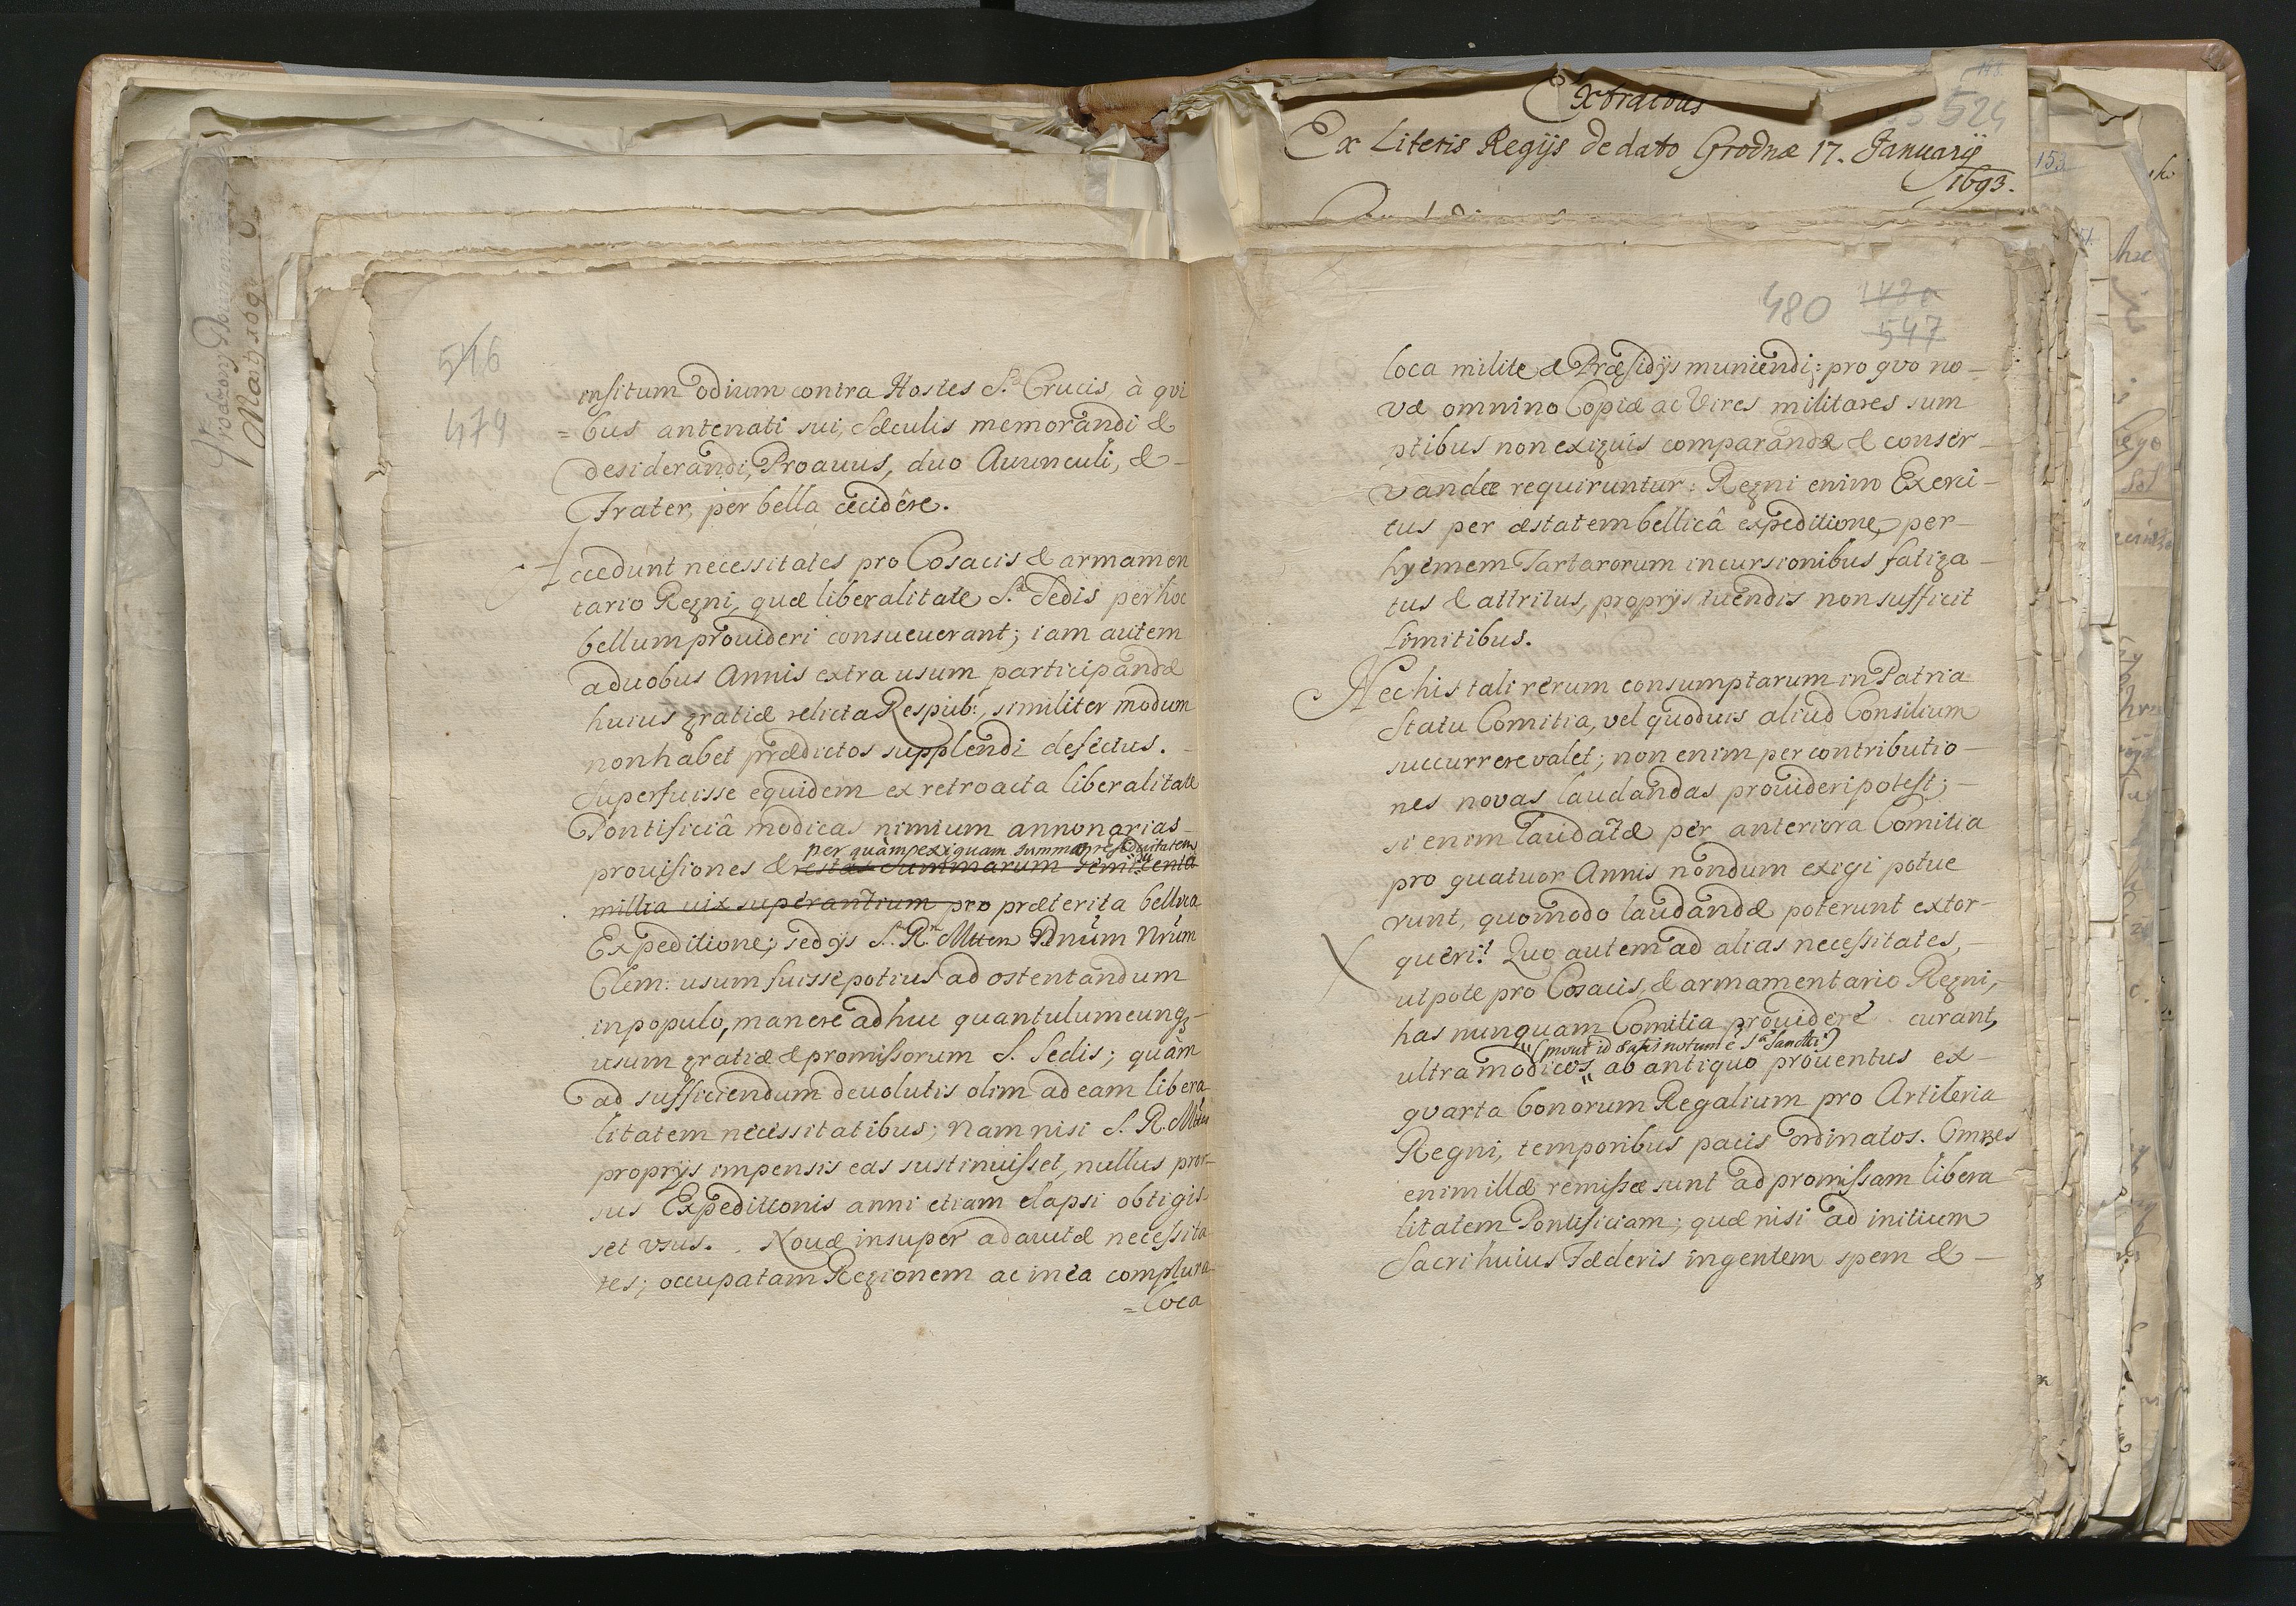 Extractus
Ex Literis Regijs de dato Grodnæ 17. Januarij
1693.
524
153.
546
479
insitum odium contra Hostes S.æ Crucis, à qvi
=bus antenati sui, sæculis memorandi &
desiderandi, Proauus, duo Auunculi, &
Frater, per bella cecidêre.
Accedunt necessitates pro Cosacis & armamen
tario Regni, quæ liberalitate S.æ Sedis per hoc
bellum prouideri consueuerant; iam autem
a duobus Annis extra usum participandæ
huius gratiæ relicta Respub:, similiter modum
non habet prædictos supplendi defectus.
Superfuisse equidem ex retroacta liberalitate
Pontificiâ modicas nimium annonarias
per quàm exiguam summæ residuitatem
prouisiones & restas Summarum
millia uix superantium pro præterita bellica
Expeditione; sed ijs S. R. Mttem Dnum Nrum
Clem: usum fuisse potius ad ostentandum
in populo, manere adhuc quantulumcunq3
usum gratiæ & promissorum S. Sedis; quàm
ad sufficiendum deuolutis olim ad eam libera
litatem necessitatibus; nam nisi S. R. Mttas
proprijs impensis eas sustinuisset, nullus pror-
sus Expeditionis anni etiam elapsi obtigis
set vsus. Nouæ insuper adauctæ necessita
tes; occupatam Regionem ac in ea complura
=loca
480
547
loca milite & Præsidijs muniendi; pro quo no-
væ omnino Copiæ ac Vires militares sum
ptibus non exiguis comparandæ & conser-
vandæ requiruntur: Regni enim Exerci-
tus per æstatem bellicâ expeditione, per
hyemem Tartarorum incursionibus fatiga-
tus & attritus, proprijs tuendis non sufficit
Limitibus.
Nec his tali rerum consumptarum in Patria
Statu Comitia, vel quoduis aliud Consilium
succurrere valet; non enim per contributio-
nes novas laudandas prouideri potest;
si enim laudatæ per anteriora Comitia
pro quatuor Annis nondum exigi potue
runt, quomodo laudandæ poterunt extor-
queri? Quo autem ad alias necessitates,
utpote pro Cosacis, & armamentario Regni,
has nunquam Comitia prouidere curant,
(prout id satis notum e S.æ Sanctti)
ultra modicos ab antiquo prouentus ex
qvarta bonorum Regalium pro Artileria
Regni, temporibus pacis ordinatos. Omnes
enim illæ remissæ sunt ad promissam libera
litatem Pontificiam; quæ nisi ad initium
Sacri huius Fæderis ingentem spem &